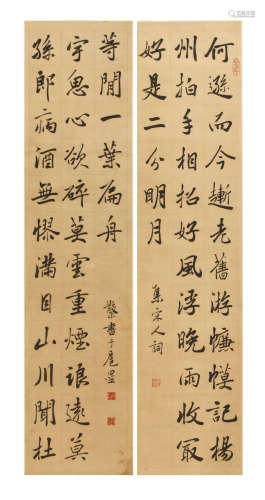 何遜而今漸老舊游㡘幙記楊
州拍手相招好風浮晚雨收冣
好是二分明月
集宋人詞
孫郎病酒無憀滿目山川聞杜
宇思心欲碎莫雲重煙浪遠莫
等閒一葉扁舟
書于